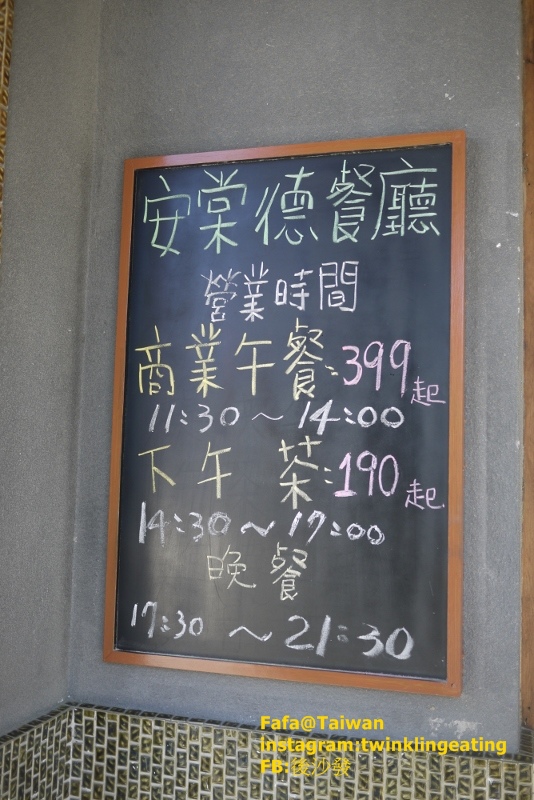 安棠德餐廳
營業時間
商業午餐:399起
11:30～14:00
下午茶:190起
14:30～17:00
晚餐
17:30～21:30
Fafa@Taiwan
instagram:twinklingeating
FB:後沙發